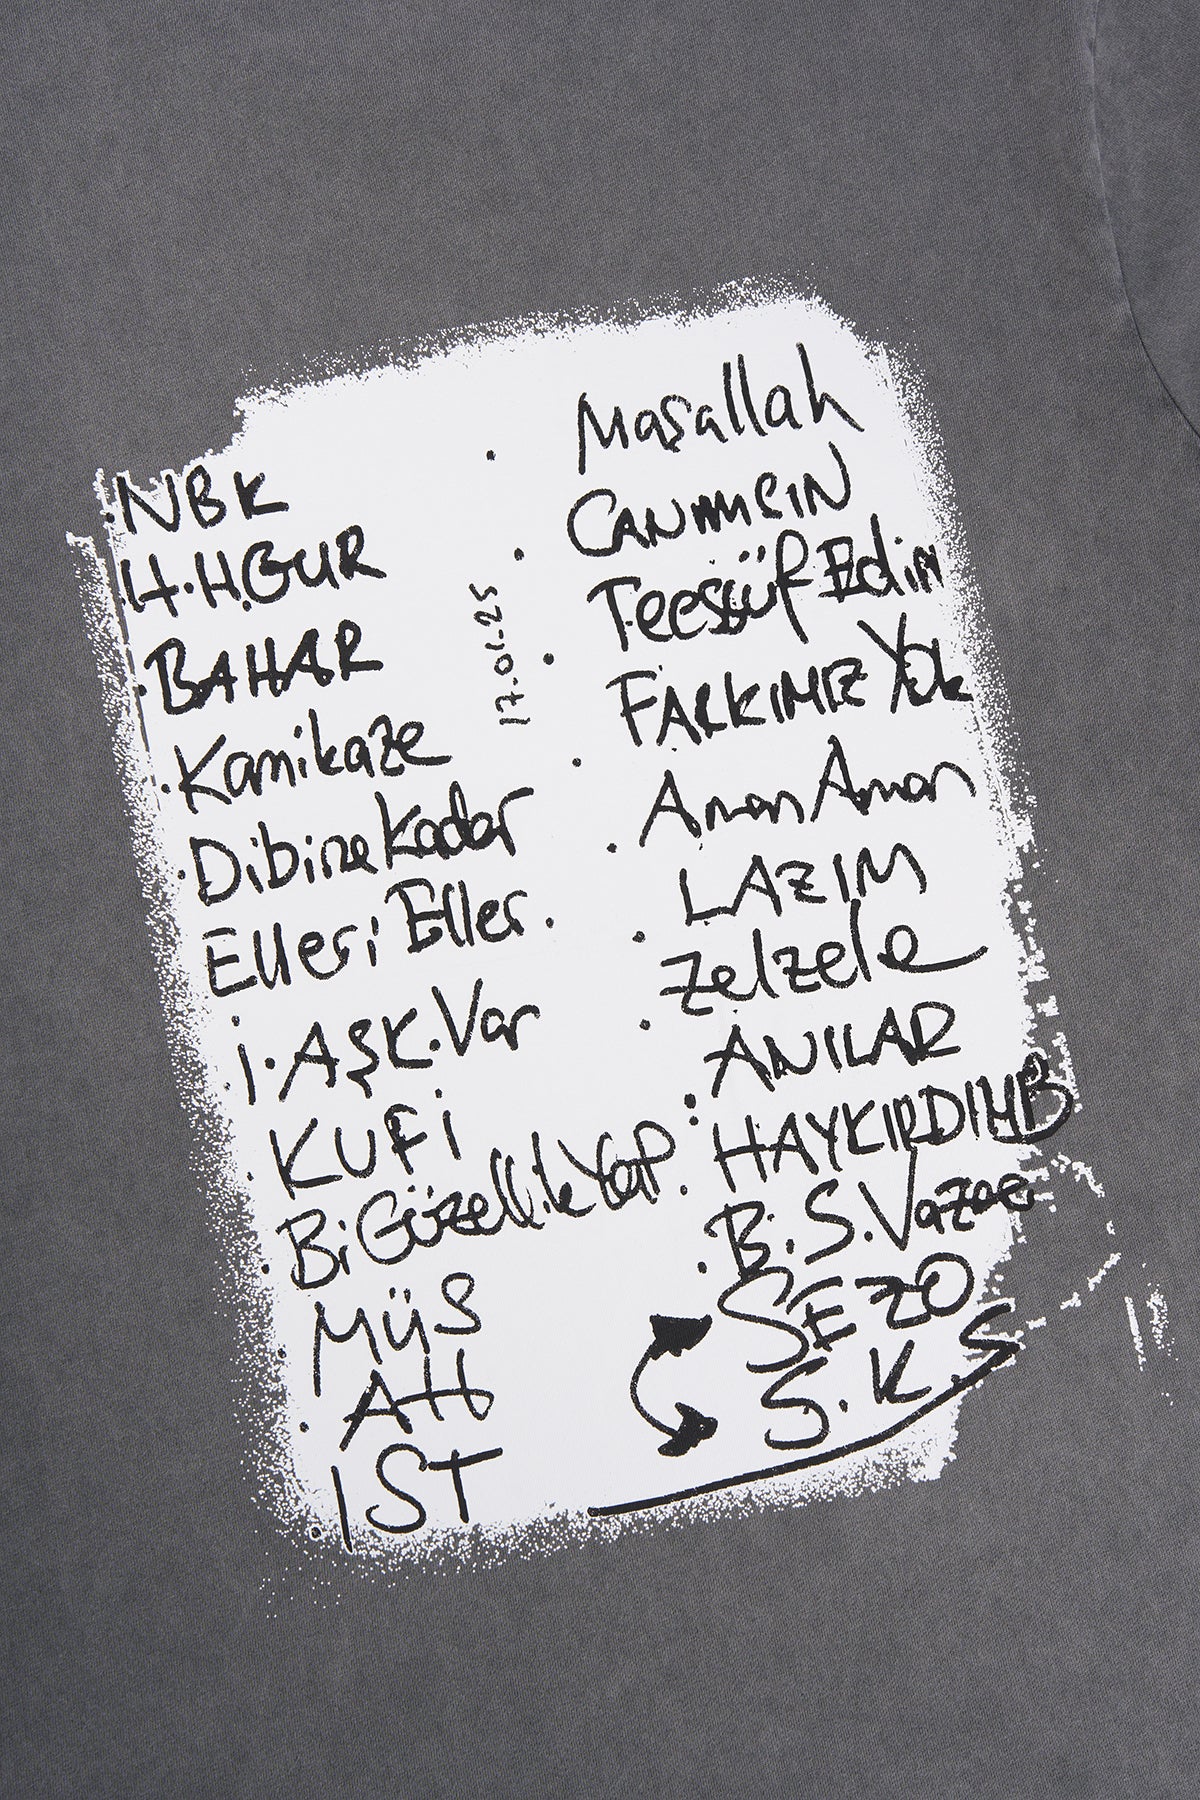 NBK
H.H.GUR
BAHAR
Kamikaze
Dibine Kadar
Elleri Eller.
İ.AŞK.Var
KUFİ
Bi Güzellik Yap.
MÜS
AH
IST
17.01.25
Maşallah
CANIMSIN
Teessüf Edim
FARKIMIZ Yok
Aman Aman
LAZIM
Zelzele
ANILAR
HAYKIRDIM B
B.S.Vazge
SEZO
S.K.S